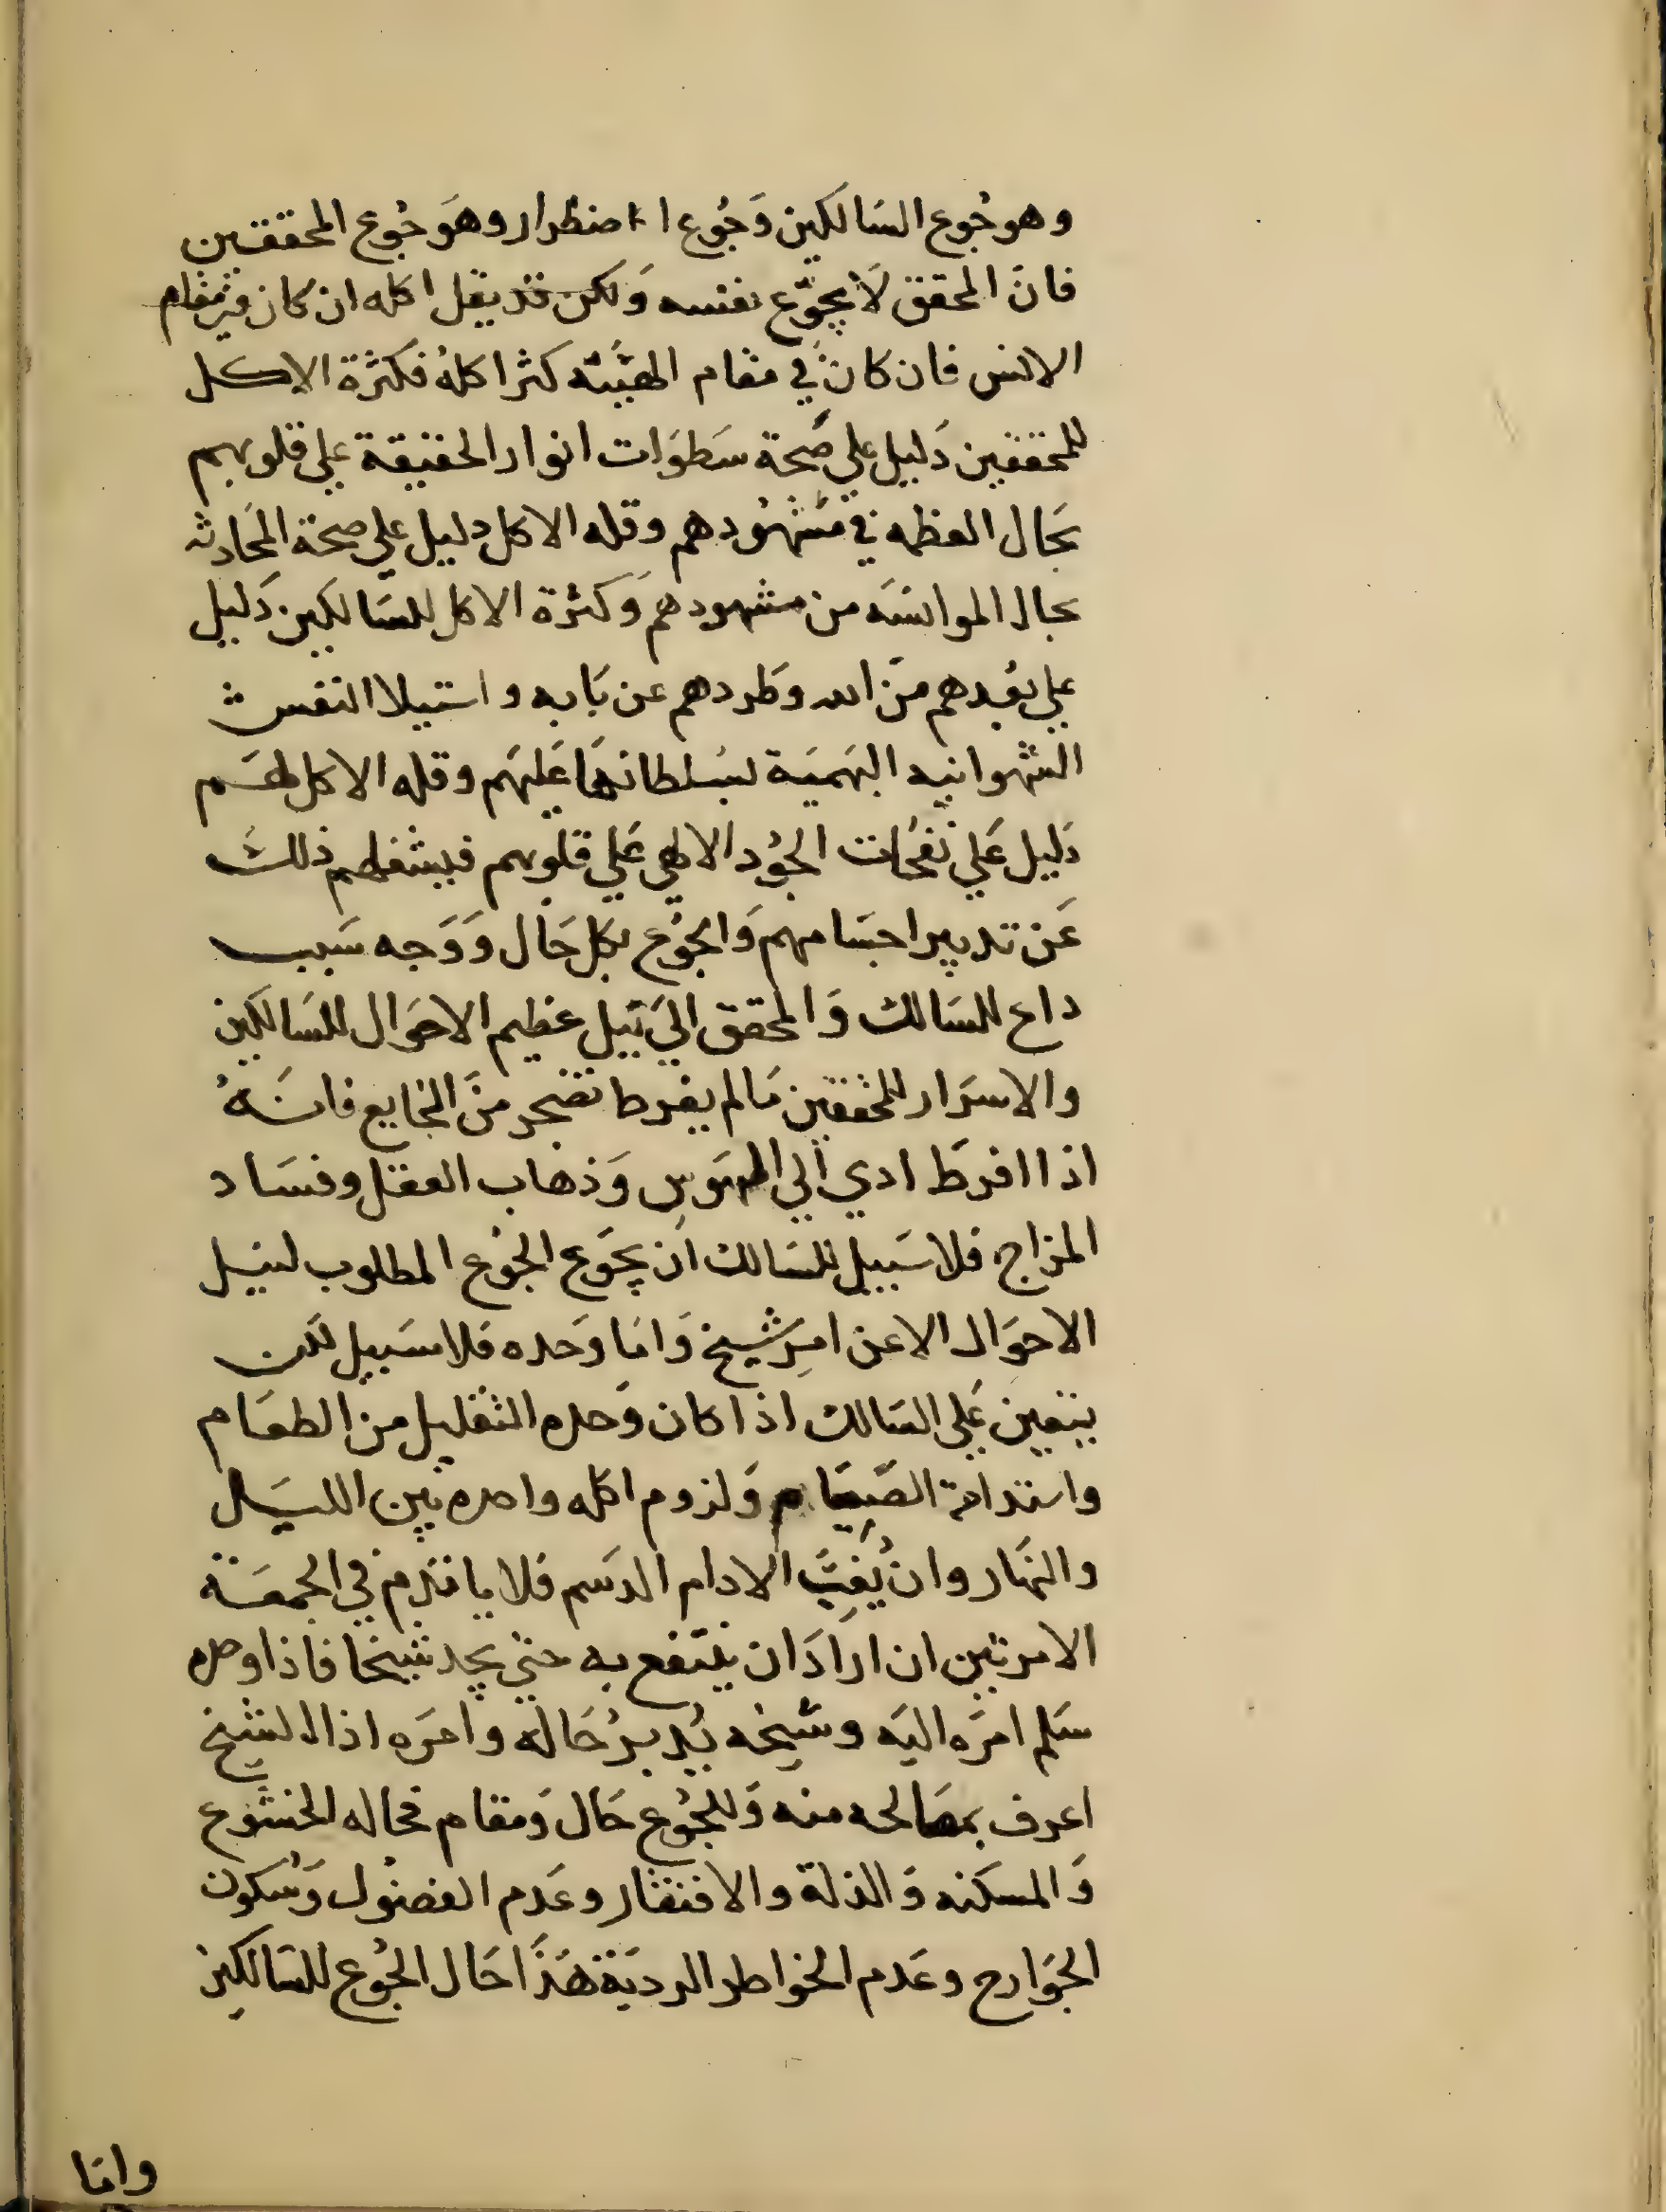 وهو جُوع السَالكين وَجُوع اضطرار وهَو جُوع المحققين
فانَ المحقق لَا يجوّع نفسه وَلكن قد يقل اكله ان كان في مقام
الانس فان كانَ في مقام الهَيبَته كثر اكلهُ فكثرة الاكل
للمحققين دَليل علي صَحة سَطوَات انوار الحقيقة علي قلوبهم
بَحال العظمه في مَشهُودهم وقله الاكل دليل علي صحة المحَادثه
بحال الموانسَه من مشهودهم وَكثرة الاكل للسَالكين دَليل
علي بعُدهم منَ الله وطردهم عن بَابه واستيلا النفس
الشهوانيه البَهمَية لبسُلطانهَا عَليهَم وقله الاكل لهَم
دَليل عَلي نفحَات الجوُد الالهي عَلي قلوبهم فيشغلهم ذلكَ
عَن تدبير اجسَامهم وَالجوُع بكل حَال وَوَجه سَبب
داع للسَالك وَالمحقق اليَ نَيل عظيم الاحوَال للسَالكين
والاسرَار للمحققين مَا لم يفرط تضجر منَ الجايع فانَهُ
اذا افرَط ادي الي الهوَس وَذهاب العقل وفسَاد
المزاج فلا سَبيل للسَالك اَن يجَوع الجوُع المطلوب لنيل
الاحوَال الا عن امِر شيخ وَامَا وَحده فلا سَبيل لكن
يتعين عَلي السَالك اذا كان وَحده التقليل من الطعَام
واستدامة الصَيَام وَلزوم اكله واحده بَين الليَل
والنهَار وان يُغِبَّ الادام الدسَم فلا ياتدم في الجمعَة
الا مرتين ان ارادَ ان ينتفع به حتي يجد شيخا فاذا وجده
سَلم امرَه اليَه وشَيخه يُدبرُ حَاله وامرَه اذ الشيخ
اعرف بمصَالحه منه وَللجُوع حَال وَمقام فحاله الخشوُع
وَالمسكَنه وَالذلة والافتقار وعَدم الفضوُل وَسُكون
الجوَارح وعَدم الخواطر الرديَة هَذَا حَال الجُوع للسَالكين
وامَا